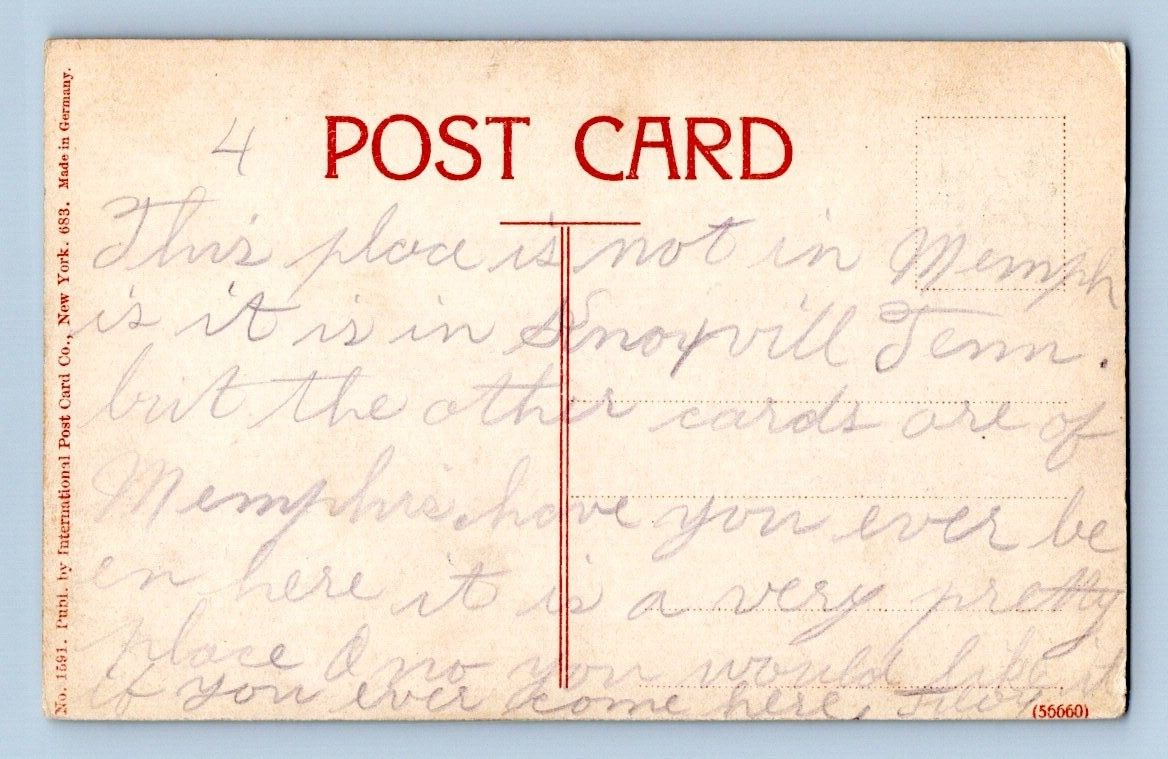 No. 1591. Publ. by International Post Card Co., New York. 683. Made in Germany.
4
POST CARD
This place is not in Memph
is it is in Knoxvill Tenn.
but the other cards are of
Memphis, have you ever be
en here it is a very pretty
place I no you would like it
if you ever come here,
(56660)